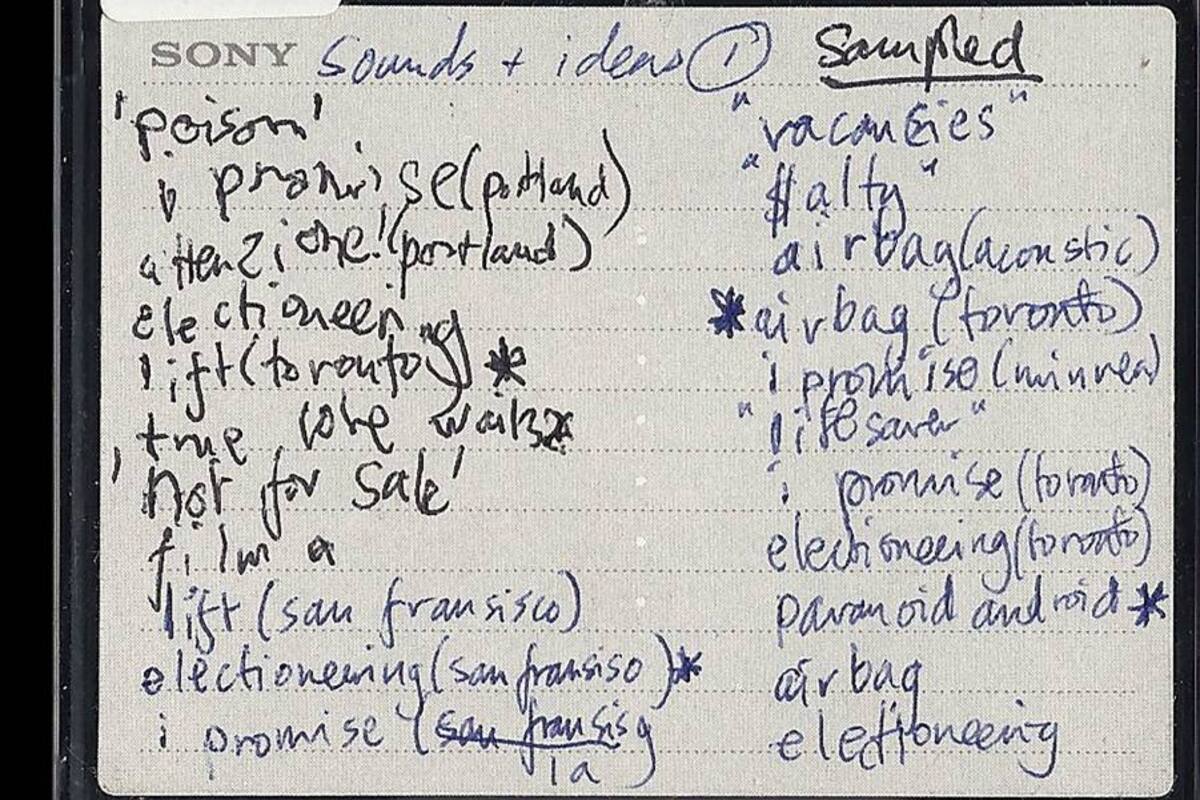 SONY sounds + ideas ① sampled
'poison'
i promise (portland)
attenzione! (portland)
electioneering
lift (toronto) *
true love waits *
'not for sale'
film a
lift (san fransisco)
electioneering (san fransiso) *
i promise (san fransis
la
"vacansies"
"$alty"
airbag (acoustic)
* airbag (toronto)
i promise (minnea)
"lifesaver"
i promise (toronto)
electioneering (toronto)
paranoid android *
airbag
electioneering